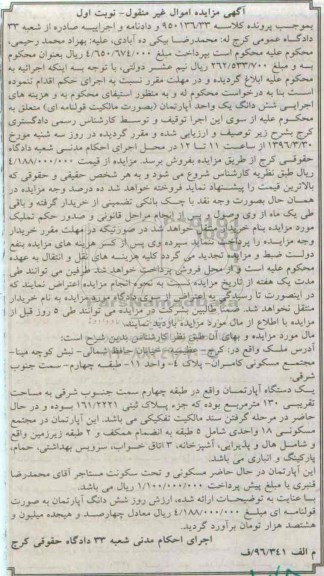 آگهی مزایده اموال غیر منقول- نوبت اول
بموجب پرونده کلاسه ۹۵۰۱۳۶/۳۳ و دادنامه و اجرائیه صادره از شعبه ۳۳
دادگاه عمومی کرج له: محمدرضا بیکی ده آبادی، علیه: بهزاد محمد رحیمی،
محکوم علیه محکوم است بپرداخت مبلغ ۴/۶۵۰/۶۷۴/۰۰۰ ریال بعنوان محکوم
به و مبلغ ۲۶۲/۵۳۳/۷۰۰ ریال نیم عشر دولتی، با توجه به اینکه اجرائیه به
محکوم علیه ابلاغ گردیده و در مهلت مقرر نسبت به اجرای حکم اقدام ننموده
است بنا به درخواست محکوم له و به منظور استیفای محکوم به و هزینه های
اجرایی شش دانگ یک واحد آپارتمان (بصورت مالکیت قولنامه ای) متعلق به
محکوم علیه از سوی این اجرا توقیف و توسط کارشناس رسمی دادگستری
کرج بشرح زیر توصیف و ارزیابی شده و مقرر گردیده در روز سه شنبه مورخ
۱۳۹۶/۳/۳۰ از ساعت ۱۱ تا ۱۲ در محل اجرای احکام مدنی شعبه دادگاه
حقوقی کرج از طریق مزایده بفروش برسد. مزایده از قیمت ۴/۱۸۸/۰۰۰/۰۰۰
ریال طبق نظریه کارشناس شروع می شود و به هر شخص حقیقی و حقوقی که
بالاترین قیمت را پیشنهاد نماید فروخته خواهد شد. ده درصد وجه مزایده در
همان حال بصورت وجه نقد یا چک بانکی تضمینی از خریدار گرفته و باقی
طی یک ماه از وی وصول و پس از انجام مراحل قانونی و صدور حکم تملیک
مورد مزایده بنام خریدار منتقل خواهد شد در صورتیکه در مهلت مقرر خریدار
وجه مزایده را پرداخت ننماید سپرده وی پس از کسر هزینه های مزایده بنفع
دولت ضبط و مزایده تجدید می گردد کلیه هزینه های نقل و انتقال به عهده
محکوم علیه است و از محل فروش پرداخت خواهد شد. طرفین می توانند طی
مدت یک هفته از تاریخ مزایده نسبت به نحوه انجام مزایده اعتراض نمایند که
در اینصورت تا رسیدگی به اعتراض از سوی دادگاه مورد مزایده به نام خریدار
منتقل نخواهد شد. ضمنا طالبین شرکت در مزایده می توانند طی ۵ روز قبل از
مزایده با اطلاع از مال مورد مزایده بازدید نمایند.
مال مورد مزایده و بهای آن طبق نظر کارشناس بدین شرح است:
آدرس ملک واقع در: کرج- عظیمیه- خیابان حافظ شمالی- نبش کوچه مینا-
مجتمع مسکونی کامران- پلاک ۴- واحد ۱۱- طبقه چهارم- سمت جنوب
شرقی.
یک دستگاه آپارتمان واقع در طبقه چهارم سمت جنوب شرقی به مساحت
تقریبی ۱۳۰ مترمربع بوده که جزء پلاک ثبتی ۱۶۱/۲۲۲۱ بوده و در حال
حاضر در مرحله گرفتن سند مالکیت تفکیکی می باشد. این آپارتمان در مجتمع
مسکونی ۱۸ واحدی شامل ۵ طبقه به انضمام همکف و ۲ طبقه زیرزمین واقع
و شامل هال و پذیرایی، آشپزخانه، ۳ اتاق خواب، سرویس بهداشتی، حمام،
پارکینگ و انباری می باشد.
این آپارتمان در حال حاضر مسکونی و تحت سکونت مستاجر آقای محمدرضا
قنبری با مبلغ پیش پرداخت ۱/۱۰۰/۰۰۰/۰۰۰ ریال می باشد.
بنا عنایت به توضیحات ارائه شده، ارزش روز شش دانگ آپارتمان به صورت
قولنامه ای مبلغ ۴/۱۸۸/۰۰۰/۰۰۰ ریال معادل چهارصد و هیجده میلیون و
هشتصد هزار تومان برآورد گردید.
اجرای احکام مدنی شعبه ۳۳ دادگاه حقوقی کرج
م الف ۹۶/۳۴۱/ف